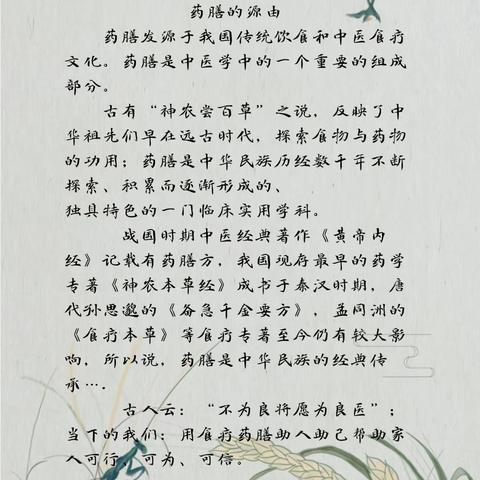 药膳的源由
药膳发源于我国传统饮食和中医食疗
文化。药膳是中医学中的一个重要的组成
部分。
古有“神农尝百草”之说，反映了中
华祖先们早在远古时代，探索食物与药物
的功用；药膳是中华民族历经数千年不断
探索、积累而逐渐形成的、
独具特色的一门临床实用学科。
战国时期中医经典著作《黄帝内
经》记载有药膳方，我国现存最早的药学
专著《神农本草经》成书于秦汉时期，唐
代孙思邈的《备急千金要方》，孟同洲的
《食疗本草》等食疗专著至今仍有较大影
响，所以说，药膳是中华民族的经典传
承….
古人云：“不为良将愿为良医”；
当下的我们：用食疗药膳助人助己帮助家
人可行、可为、可信。